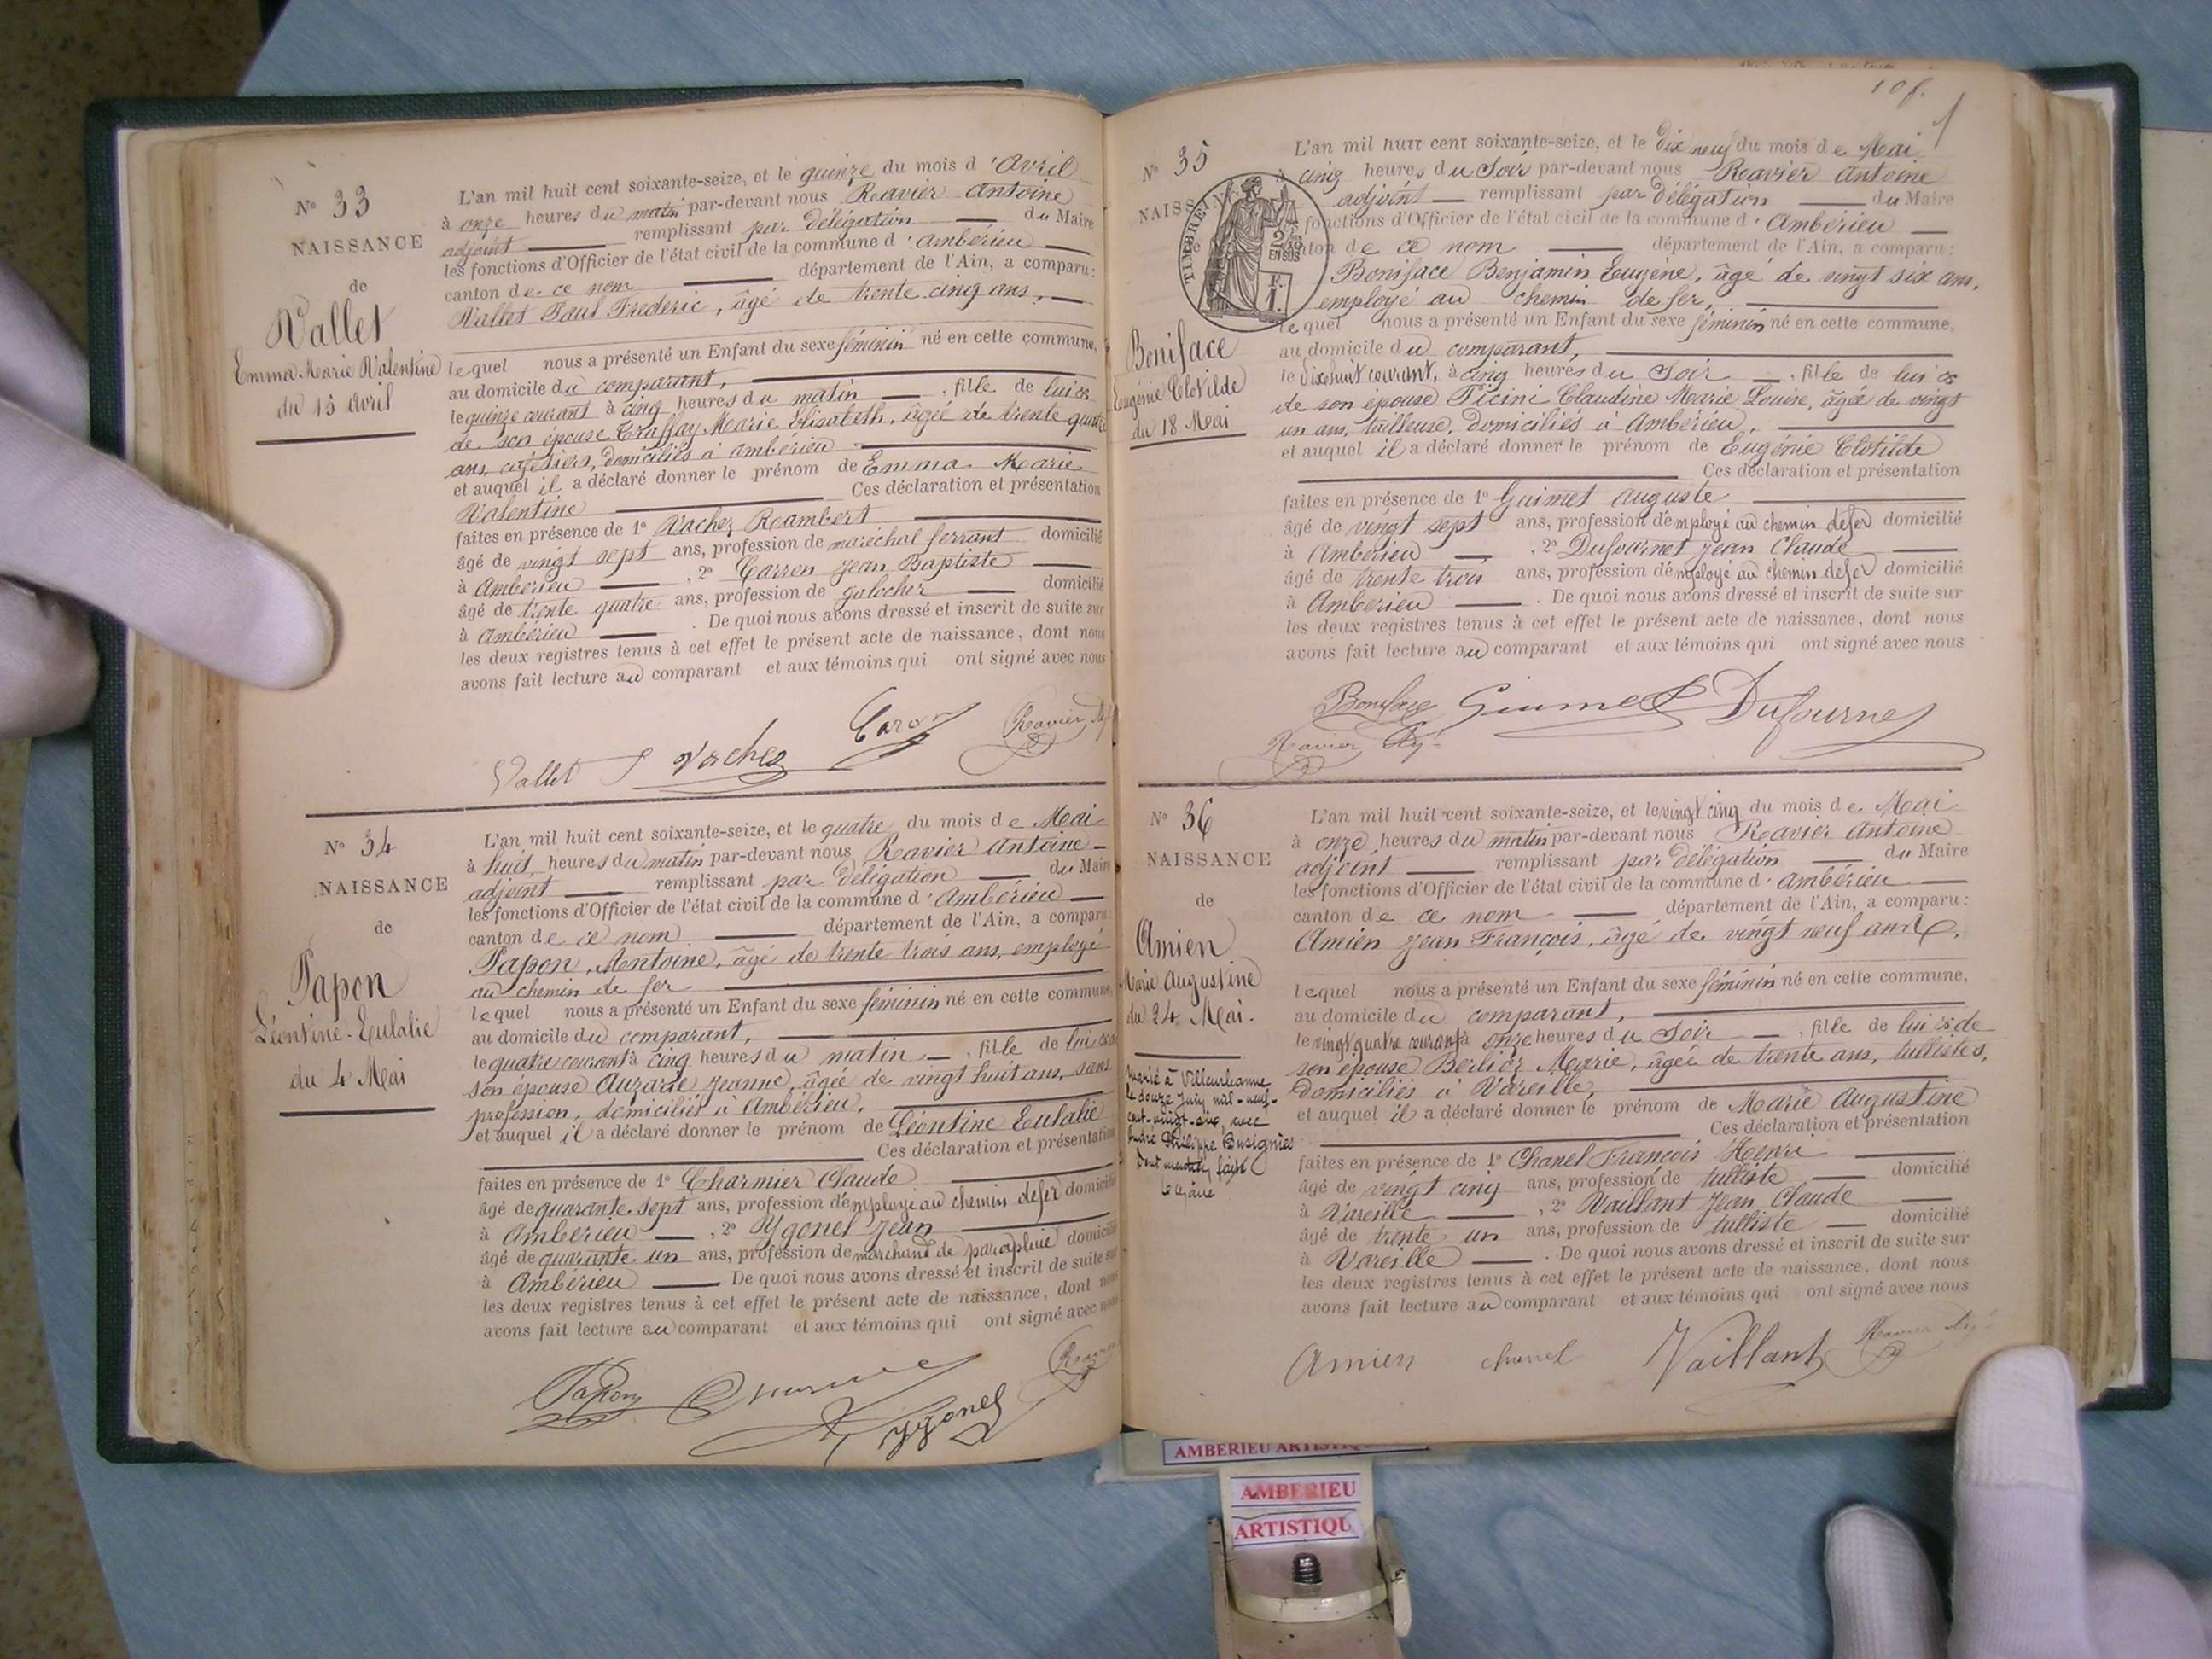 N° 33
NAISSANCE
de
Vallet
Emma Marie Valentine
du 15 avril
L'an mil huit cent soixante-seize, et le quinze du mois d'Avril
à onze heures du matin par-devant nous Ravier Antoine
adjoint remplissant par délégation du Maire
les fonctions d'Officier de l'état civil de la commune d'Ambérieu
canton de ce nom département de l'Ain, a comparu:
Vallet Paul Frederic, âgé de trente cinq ans,
lequel nous a présenté un Enfant du sexe féminin né en cette commune,
au domicile du comparant,
le quinze courant à cinq heures du matin, fille de lui &
de son épouse Marie Elisabeth, âgée de trente quatre
ans, domiciliés à Ambérieu
et auquel il a déclaré donner le prénom de Emma Marie
Valentine Ces déclaration et présentation
faites en présence de 1° Vachez Rambert
âgé de vingt sept ans, profession de maréchal ferrant domicilié
à Ambérieu, 2° Carron Jean Baptiste
âgé de trente quatre ans, profession de galocher domicilié
à Ambérieu. De quoi nous avons dressé et inscrit de suite sur
les deux registres tenus à cet effet le présent acte de naissance, dont nous
avons fait lecture au comparant et aux témoins qui ont signé avec nous
Vallet Vachez Caron Ravier Adj
N° 34
NAISSANCE
de
Papon
Léontine-Eulalie
du 4 Mai
L'an mil huit cent soixante-seize, et le quatre du mois de Mai
à huit heures du matin par-devant nous Ravier Antoine
adjoint remplissant par délégation du Maire
les fonctions d'Officier de l'état civil de la commune d'Ambérieu
canton de ce nom département de l'Ain, a comparu:
Papon, Antoine, âgé de trente trois ans, employé
au chemin de fer
lequel nous a présenté un Enfant du sexe féminin né en cette commune,
au domicile du comparant,
le quatre courant à cinq heures du matin, fille de lui & de
son épouse Jeanne, âgée de vingt huit ans, sans
profession, domiciliés à Ambérieu,
et auquel il a déclaré donner le prénom de Léontine Eulalie
Ces déclaration et présentation
faites en présence de 1° Charmier Claude
âgé de quarante sept ans, profession d'employé au chemin de fer domicilié
à Ambérieu, 2° Ygonel Jean
âgé de quarante un ans, profession de marchand de parapluie domicilié
à Ambérieu De quoi nous avons dressé et inscrit de suite sur
les deux registres tenus à cet effet le présent acte de naissance, dont nous
avons fait lecture au comparant et aux témoins qui ont signé avec nous
Papon Ygonel
10 f.
N° 35
NAISS
TIMBRE
2/10 EN SUS
F. 1.
Boniface
Eugénie Clotilde
du 18 Mai
L'an mil huit cent soixante-seize, et le dix neuf du mois de Mai
à cinq heures du Soir par-devant nous Ravier Antoine
adjoint remplissant par délégation du Maire
les fonctions d'Officier de l'état civil de la commune d'Ambérieu
canton de ce nom département de l'Ain, a comparu:
Boniface Benjamin Eugène, âgé de vingt six ans,
employé au chemin de fer,
lequel nous a présenté un Enfant du sexe féminin né en cette commune,
au domicile du comparant,
le dix huit courant, à cinq heures du Soir, fille de lui &
de son épouse Picini Claudine Marie Louise, âgée de vingt
un ans, tailleuse, domiciliés à Ambérieu,
et auquel il a déclaré donner le prénom de Eugénie Clotilde
Ces déclaration et présentation
faites en présence de 1° Guimet Auguste
âgé de vingt sept ans, profession d'employé au chemin de fer domicilié
à Ambérieu, 2° Dufournet Jean Claude
âgé de trente trois ans, profession d'employé au chemin de fer domicilié
à Ambérieu. De quoi nous avons dressé et inscrit de suite sur
les deux registres tenus à cet effet le présent acte de naissance, dont nous
avons fait lecture au comparant et aux témoins qui ont signé avec nous
Boniface Guimet Dufournet
Ravier Adj
N° 36
NAISSANCE
de
Amien
Marie Augustine
du 24 Mai.
Marié à Villeurbanne
le douze juin mil-neuf-
cent-vingt-six, avec
André Philippe
Dont mention faite
Le Maire
L'an mil huit cent soixante-seize, et le vingt cinq du mois de Mai
à onze heures du matin par-devant nous Ravier Antoine
adjoint remplissant par délégation du Maire
les fonctions d'Officier de l'état civil de la commune d'Ambérieu
canton de ce nom département de l'Ain, a comparu:
Amien Jean François, âgé de vingt neuf ans,
lequel nous a présenté un Enfant du sexe féminin né en cette commune,
au domicile du comparant,
le vingt quatre courant à onze heures du Soir, fille de lui & de
son épouse Berlioz Marie, âgée de trente ans, tullistes,
domiciliés à Vareille,
et auquel il a déclaré donner le prénom de Marie Augustine
Ces déclaration et présentation
faites en présence de 1° Chanel François Henri
âgé de vingt cinq ans, profession de tulliste domicilié
à Vareille, 2° Vaillant Jean Claude
âgé de trente un ans, profession de tulliste domicilié
à Vareille. De quoi nous avons dressé et inscrit de suite sur
les deux registres tenus à cet effet le présent acte de naissance, dont nous
avons fait lecture au comparant et aux témoins qui ont signé avec nous
Amien Chanel Vaillant Ravier Adj
AMBERIEU ARTISTIQUE
AMBERIEU
ARTISTIQU